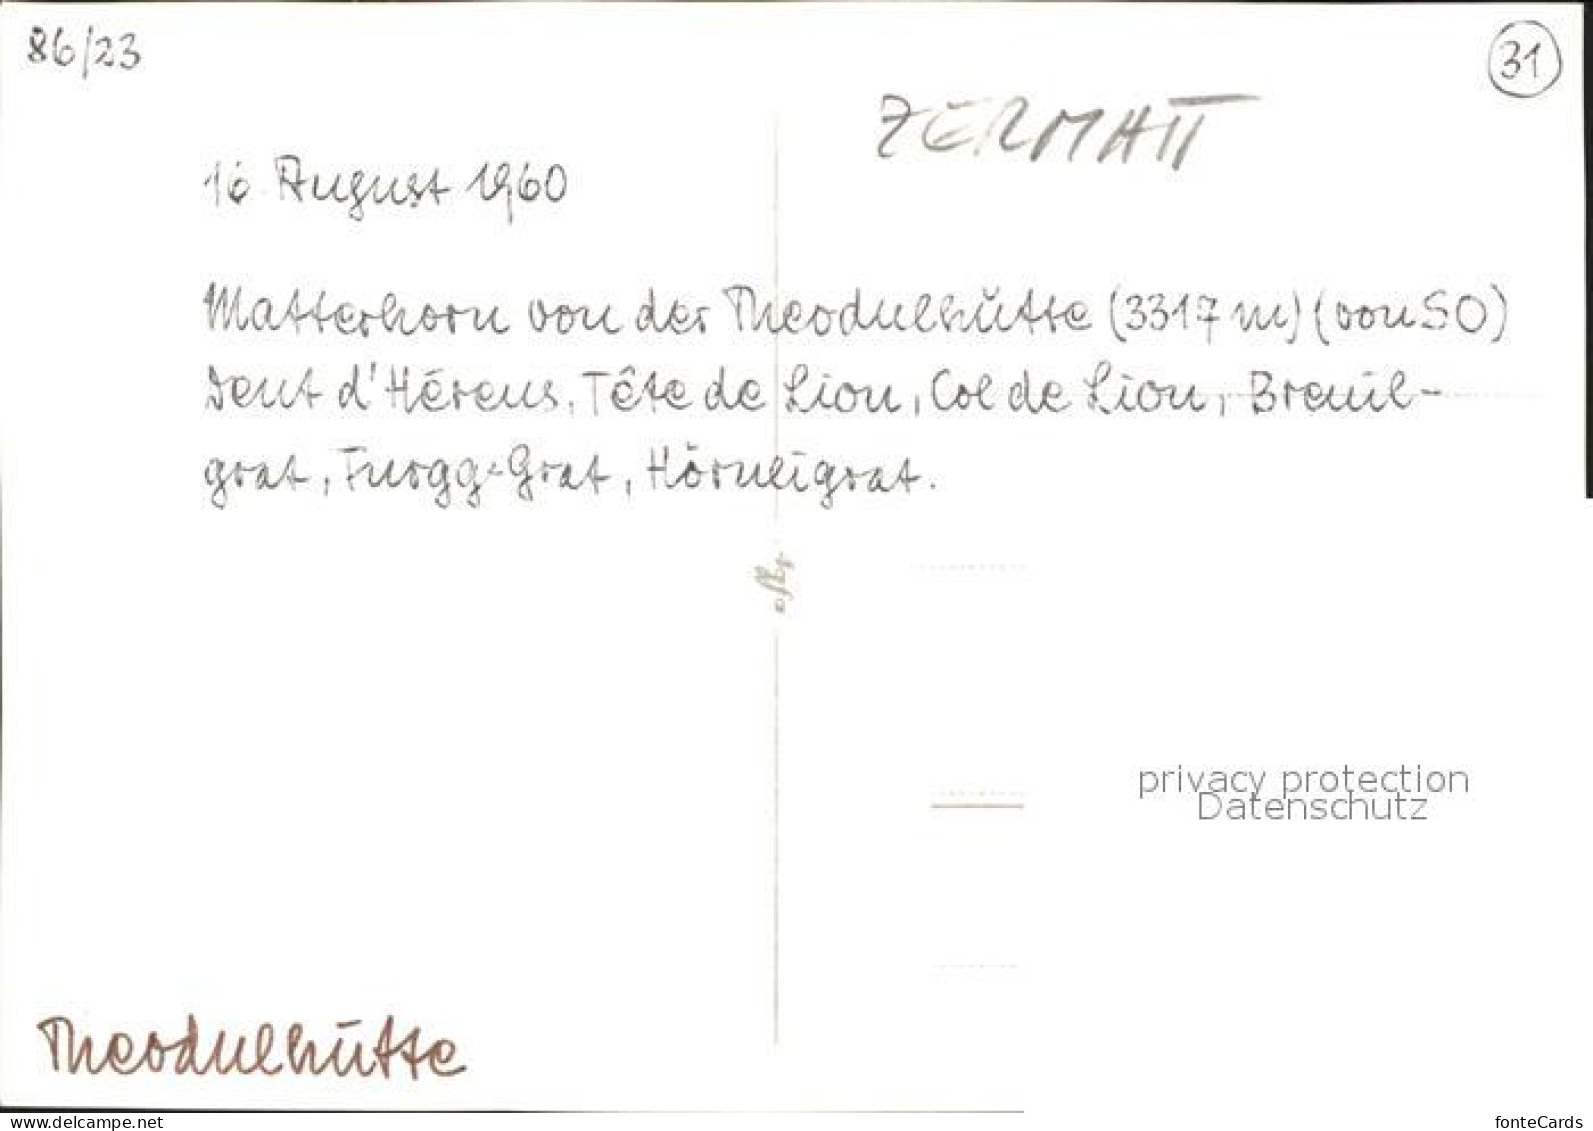 86/23
31
ZERMATT
16. August 1960
Matterhorn von der Theodulhütte (3317 m) (von SO)
Dent d'Hérens, Tête de Lion, Col de Lion, Breuil-
grat, Furgg-Grat, Hörnligrat.
privacy protection
Datenschutz
Theodulhütte
www.delcampe.net
fonteCards